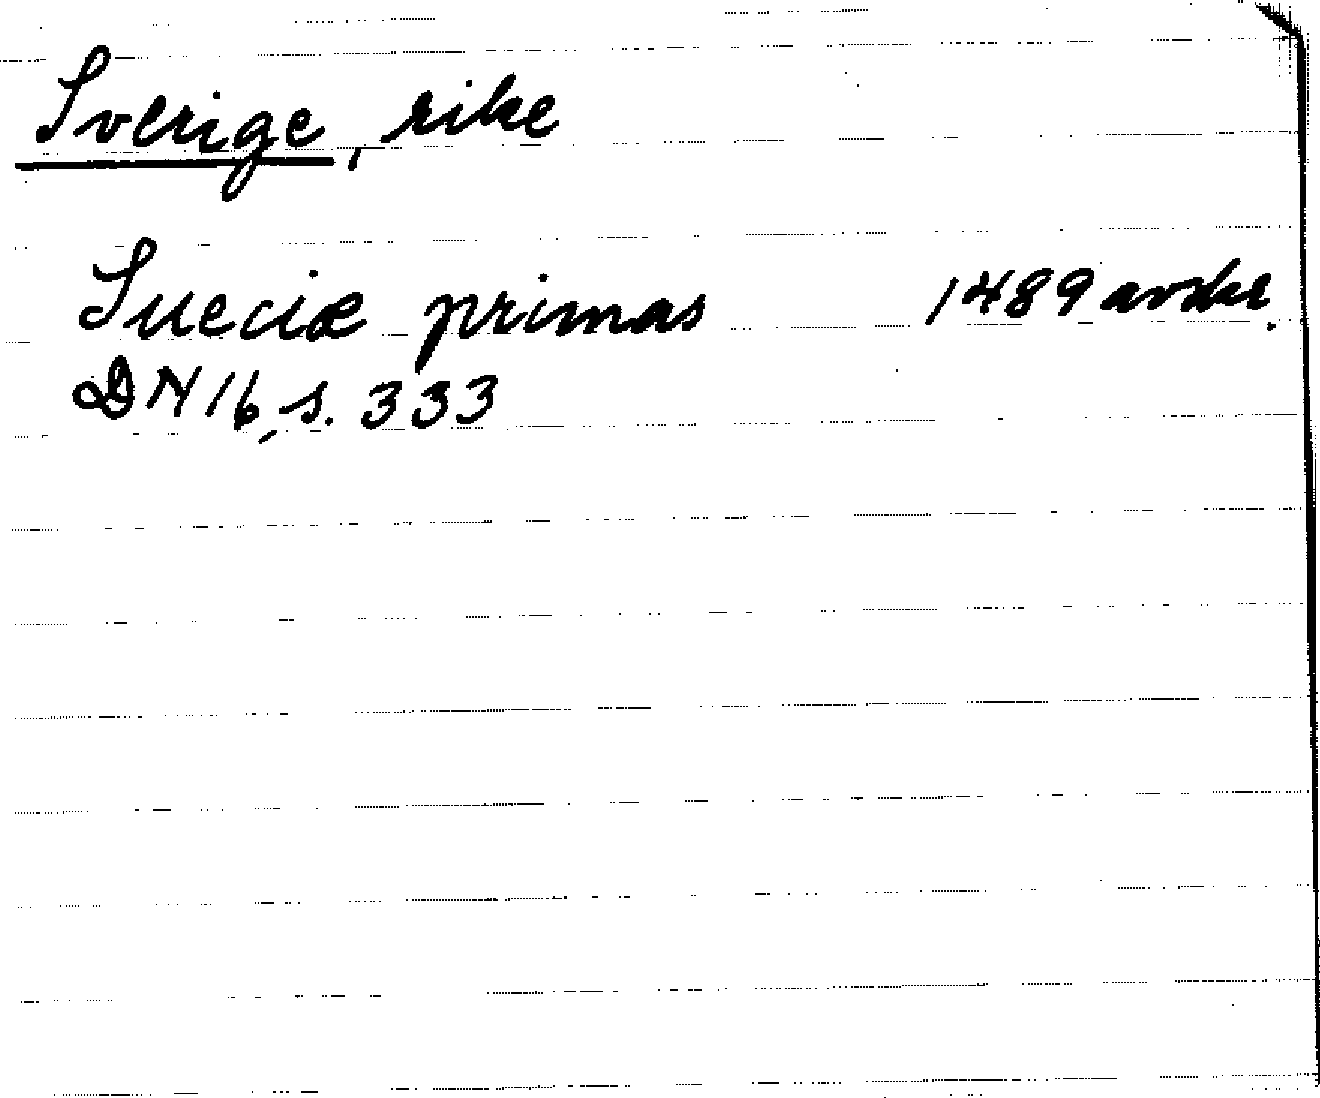 Sverige, rike
Sueciæ primas 1489 avskr.
DN 16, s. 333